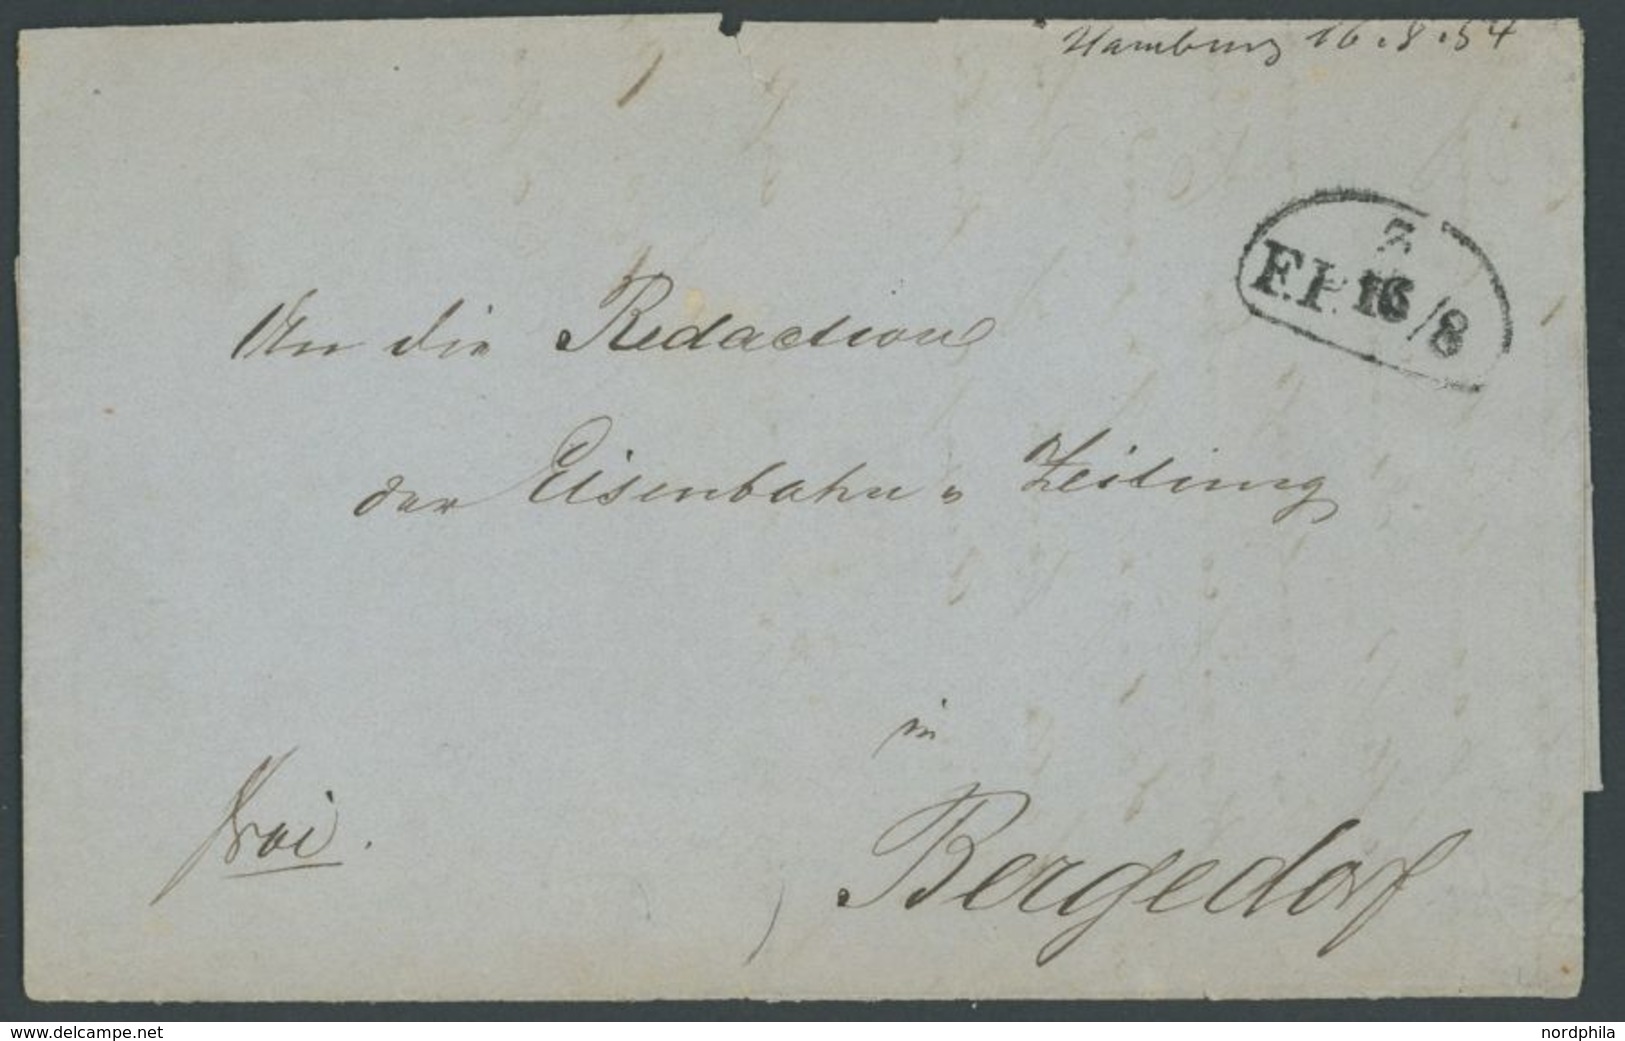 Hamburg 16.8.54
Z
F.P. 16/8
An die Redaction
der Eisenbahn = Zeitung
in
frei.
Bergedorf
www.delcampe.net
nordphila